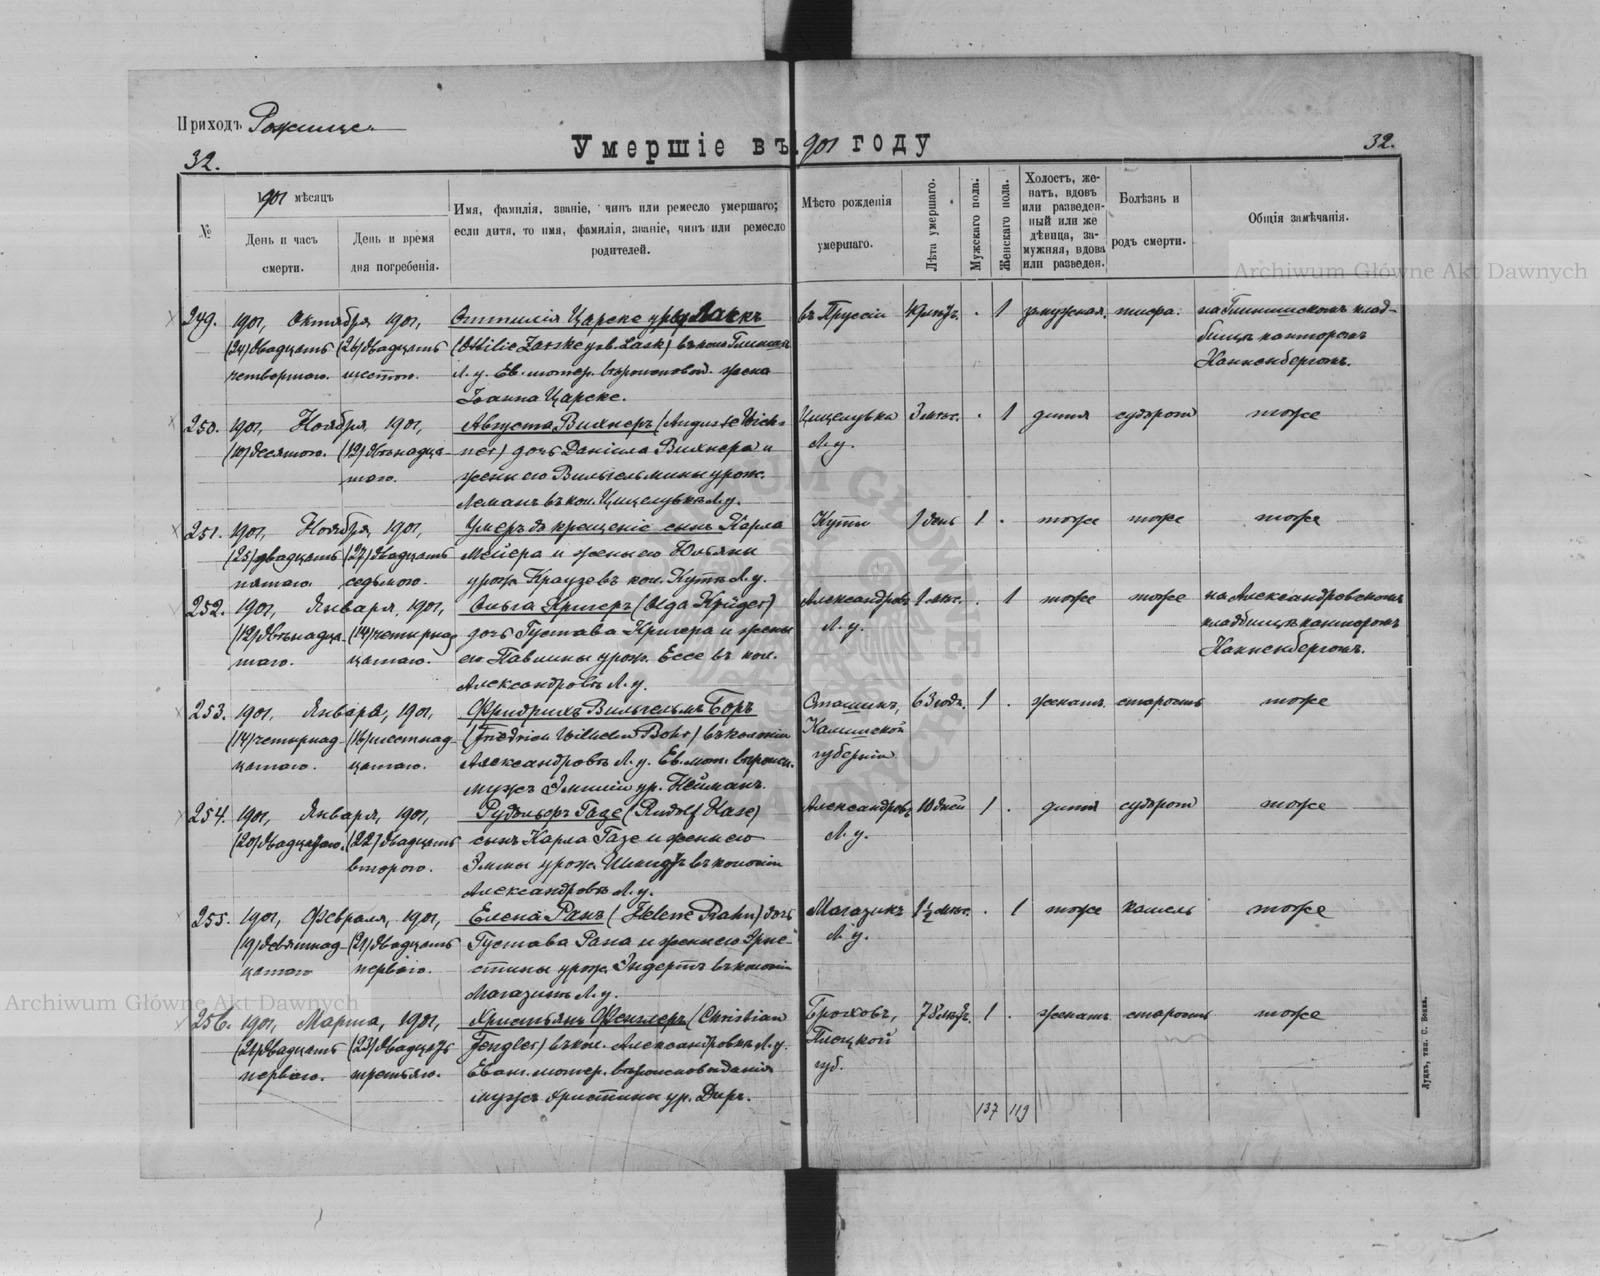 Приходъ Рожище
32.
Умершіе въ 1901 году
32.
№
1901 мѣсяцъ
День и часъ смерти.
День и время дня погребенія.
Имя, фамилія, званіе, чинъ или ремесло умершаго;
если дитя, то имя, фамилія, званіе, чинъ или ремесло
родителей.
Мѣсто рожденія
умершаго.
Лѣта умершаго.
Мужскаго пола.
Женскаго пола.
Холостъ, же-
натъ, вдовъ
или разведен-
ный или же
дѣвица, за-
мужняя, вдова
или разведен.
Болѣзнь и
родъ смерти.
Общія замѣчанія.
Archiwum Główne Akt Dawnych
249. 1901, Октября, 1901, Оттилія Царске урожд. Ласкъ въ Пруссіи 1 замужняя.
(24) двадцать (26) двадцать (Ottilie Zarske geb. Lask) въ кол.
четвертаго. шестого. Л. у. Ев. лютер. жена
Іоанна Царске.
250. 1901, Ноября, 1901, Августа Вихнеръ (Auguste Wich- 3 мѣс. . 1 дитя судорог тоже
(10) десятого. (12) двѣнадца- ner) дочь Даніила Вихнера и Л. у.
таго. жены его Вильгельмины урож.
Леманъ въ кол. Л. у.
251. 1901, Ноября, 1901, Умеръ до крещенія сынъ Карла Куты 1 день 1 . тоже тоже тоже
(25) двадцать (27) двадцать Мейера и жены его Юльяны
пятаго. седьмого. урож. Краузе въ кол. Куты Л. у.
252. 1901, Января, 1901, Ольга Кригеръ (Olga Krüger) Александровъ 1 мѣс. . 1 тоже тоже на Александровскомъ
(12) двѣнадца- (14) четырнад- дочь Густава Кригера и жены Л. у. кладбищѣ канторомъ
таго. цатаго. его Павлины урож. Ессе въ кол. Конненбергомъ.
Александровъ Л. у.
253. 1901, Января, 1901, Фридрихъ Вильгельмъ Боръ 63 годъ. 1 . женатъ старость тоже
(14) четырнад- (16) шестнад- (Friedrich Wilhelm Bohr) въ колоніи Калишской
цатаго. цатаго. Александровъ Л. у. Ев. лют. губерніи
мужъ Эмиліи ур. Нейманъ.
254. 1901, Января, 1901, Рудольфъ Газе (Rudolf Hase) Александровъ 10 дней 1 . дитя судорог тоже
(20) двадцатого. (22) двадцать сынъ Карла Газе и жены его Л. у.
второго. Эммы урож. Шмидтъ въ колоніи
Александровъ Л. у.
255. 1901, Февраля, 1901, Елена Ранъ (Helene Rahn) дочь 1½ мѣс. . 1 тоже кашель тоже
(19) девятнад- (21) двадцать Густава Рана и жены его Эрне- Л. у.
цатаго первого. стины урож. Эндертъ въ колоніи
Л. у.
Archiwum Główne Akt Dawnych
256. 1901, Марта, 1901, Христьянъ Фенглеръ (Christian 1 . женатъ старость тоже
(21) двадцать (23) двадцать Fengler) въ кол. Александровкъ Л. у. Плоцкой
первого. третьяго. Еван. лютер. вѣроисповѣданія губ.
мужъ Христины ур. Диръ.
137 119
Луцкъ, тип. С. Бокна.